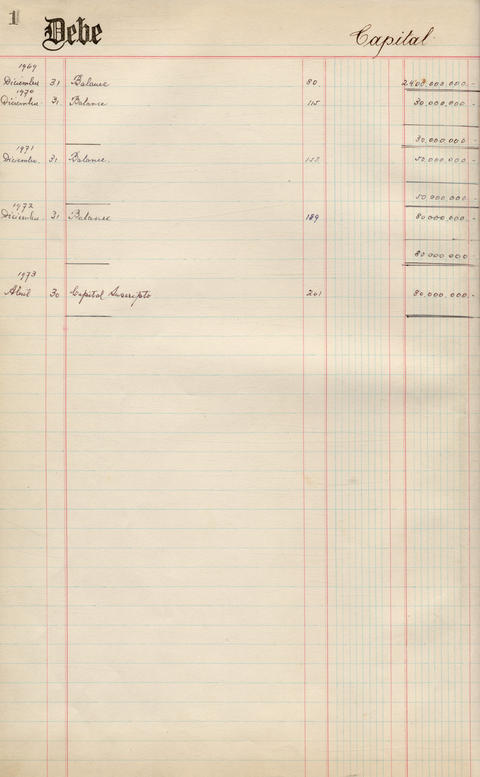 1 Debe Capital
1969
Diciembre 31 Balance 80 000.000.-
1970
Diciembre 31 Balance 115 30.000.000.-
30.000.000.-
1971
Diciembre 31 Balance. 50.000.000.-
50.000.000.-
1972
Diciembre 31 Balance 189 80.000.000.-
80.000.000
1973
Abril 30 Capital Suscripto 261 80.000.000.-